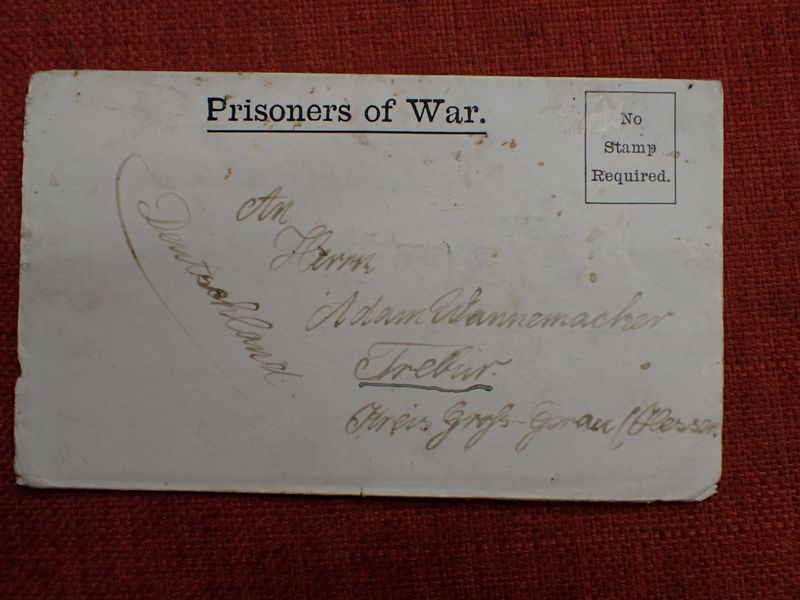 Prisoners of War.
No
Stamp
Required.
Deutschland.
An
Herrn
Adam Wannemacher
Trebur.
Kreis Groß-Gerau (Hessen